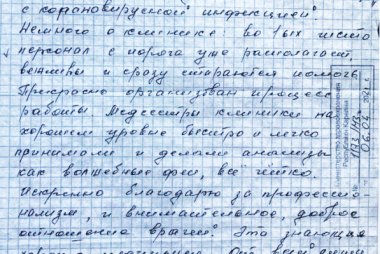 с корановирусной инфекцией.
Немного о клинике: во 1ых чисто
персонал с порога уже располагает,
вежливы и сразу стараются помочь
Прекрасно организован процесс
работы Медсестры клиники на
хорошем уровне быстро и легко
принимали и делали анализы
как волшебные феи, всё чётко.
Искренно благодарю за профессио
нализм, и внимательное, доброе
отношение врачей. Это знающие
От всей души
Республики Карелия